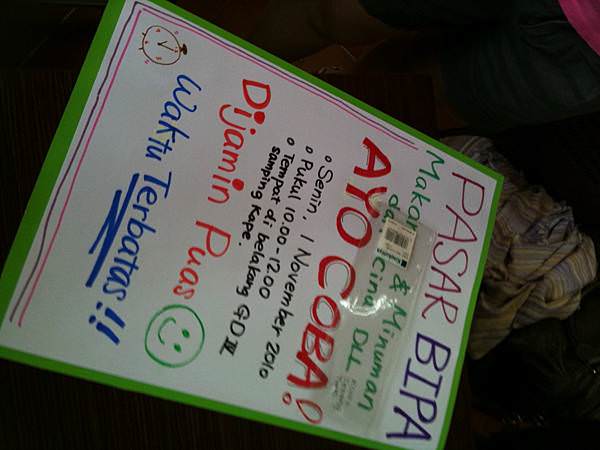 PASAR BIPA
Makan & Minuman
dari Cina DLL
AYO COBA!
Senin, 1 November 2010
Pukul 10.00-12.00
Tempat di belakang GD IV
samping Kafe.
Dijamin Puas
Waktu Terbatas!!